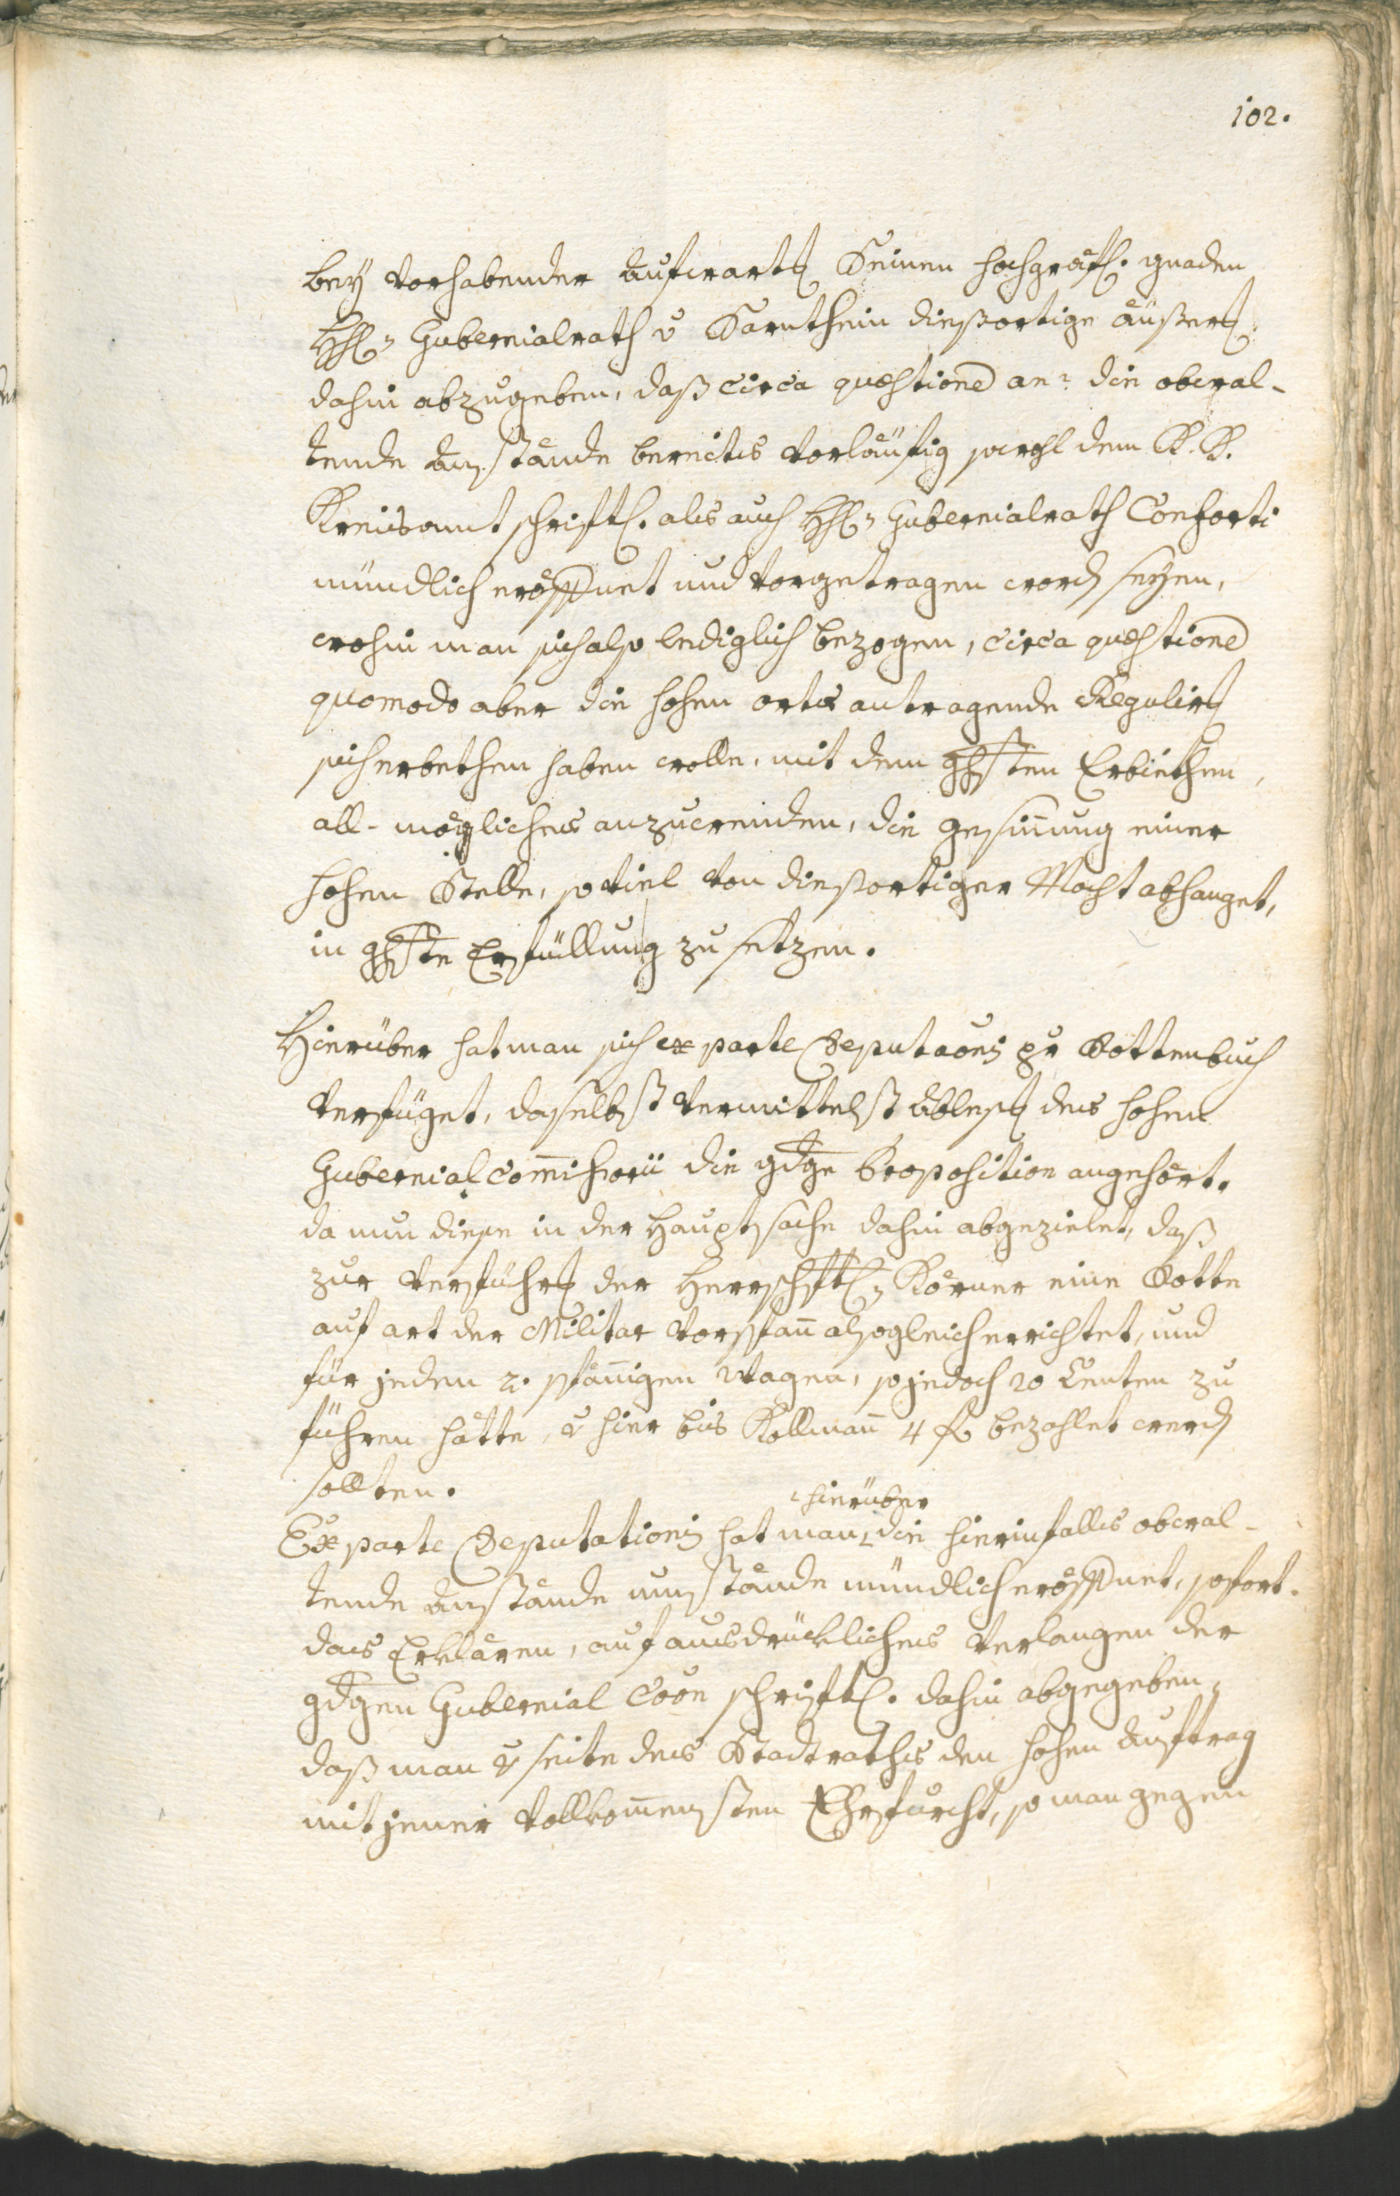 102.
bey vorhabender aufwart Seiner hochgräfl. gnaden
H. Gubernialrath v Sarnthein diesortige äußer
dahin abzugeben, daß circa quæstione an? die obwal-
tende Anstände bereits vorläufig sowohl dem K. K.
Kreisamt schriftl. als auch H. Gubernialrath Conforti
mündlich eröffnet und vorgetragen word seyen,
wohin man sich also lediglich bezogen, circa quæstione
quomodo aber die hohen orts antragende Regulir
sich erbethen haben wolle, mit dem ghsten Erbiethen,
all- mögliches anzuwenden, die gesinnung einer
hohen Stelle, so viel von diesortiger Macht abhanget,
in ghste Erfüllung zu setzen.
Hierüber hat man sich ex parte Deputaõnis zu Rottenbuch
verfüget, daselbst vermittelst Ables des hohen
Gubernial Com̃issarii die gdge Proposition angehört.
da nun diese in der Hauptsache dahin abgezielet, daß
zur Verführ der Herrschftl. Körner eine Rotte
auf art der Militar Vorspan̄ alsogleich errichtet, und
für jeden 2. spännigen Wagen, so jedoch 20 Centen zu
führen hätte, v hier bis Kollman̄ 4 f bezahlet werd
sollten.
Ex parte Deputationis hat man hierüber die hierinfalls obwal-
tende Anstände umstände mündlich eröffnet, sofort
das Erklären, auf ausdrückliches Verlangen der
gdgen Gubernial Coõn schriftl. dahin abgegeben,
daß man v seite des Stadtraths den hohen Auftrag
mit jener vollkom̄ensten Ehrfurcht, so man gegen